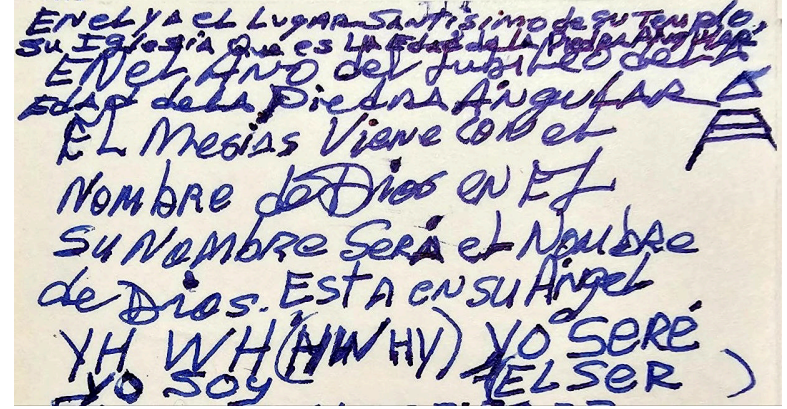 En el YA el Lugar Santísimo de su Templo,
su Iglesia que es la Edad de la Piedra Angular,
EN el Año del Jubileo de la
Edad de la Piedra Angular
EL Mesías Viene con el
Nombre de Dios en El
Su Nombre Será el Nombre
de Dios. Esta en su Ángel
YHWH (HWHY) Yo Seré
Yo Soy (EL SER )